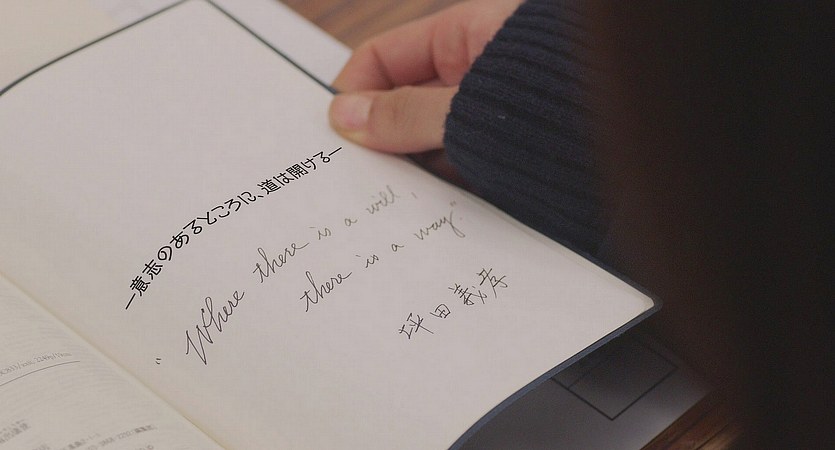 ー意志のあるところに、道は開けるー
“Where there is a will,
there is a way”.
坪田義孝